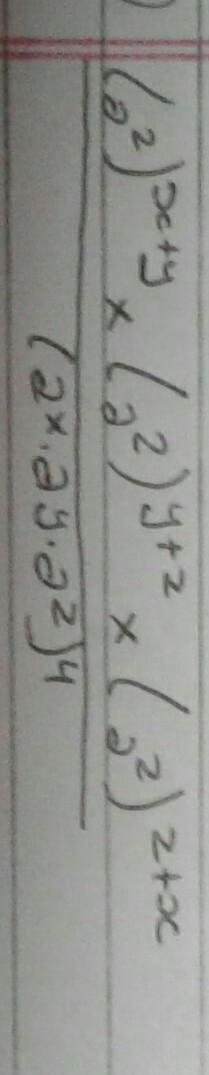 (a²)^(x+y) × (a²)^(y+z) × (a²)^(z+x)
(a^x · a^y · a^z)^4